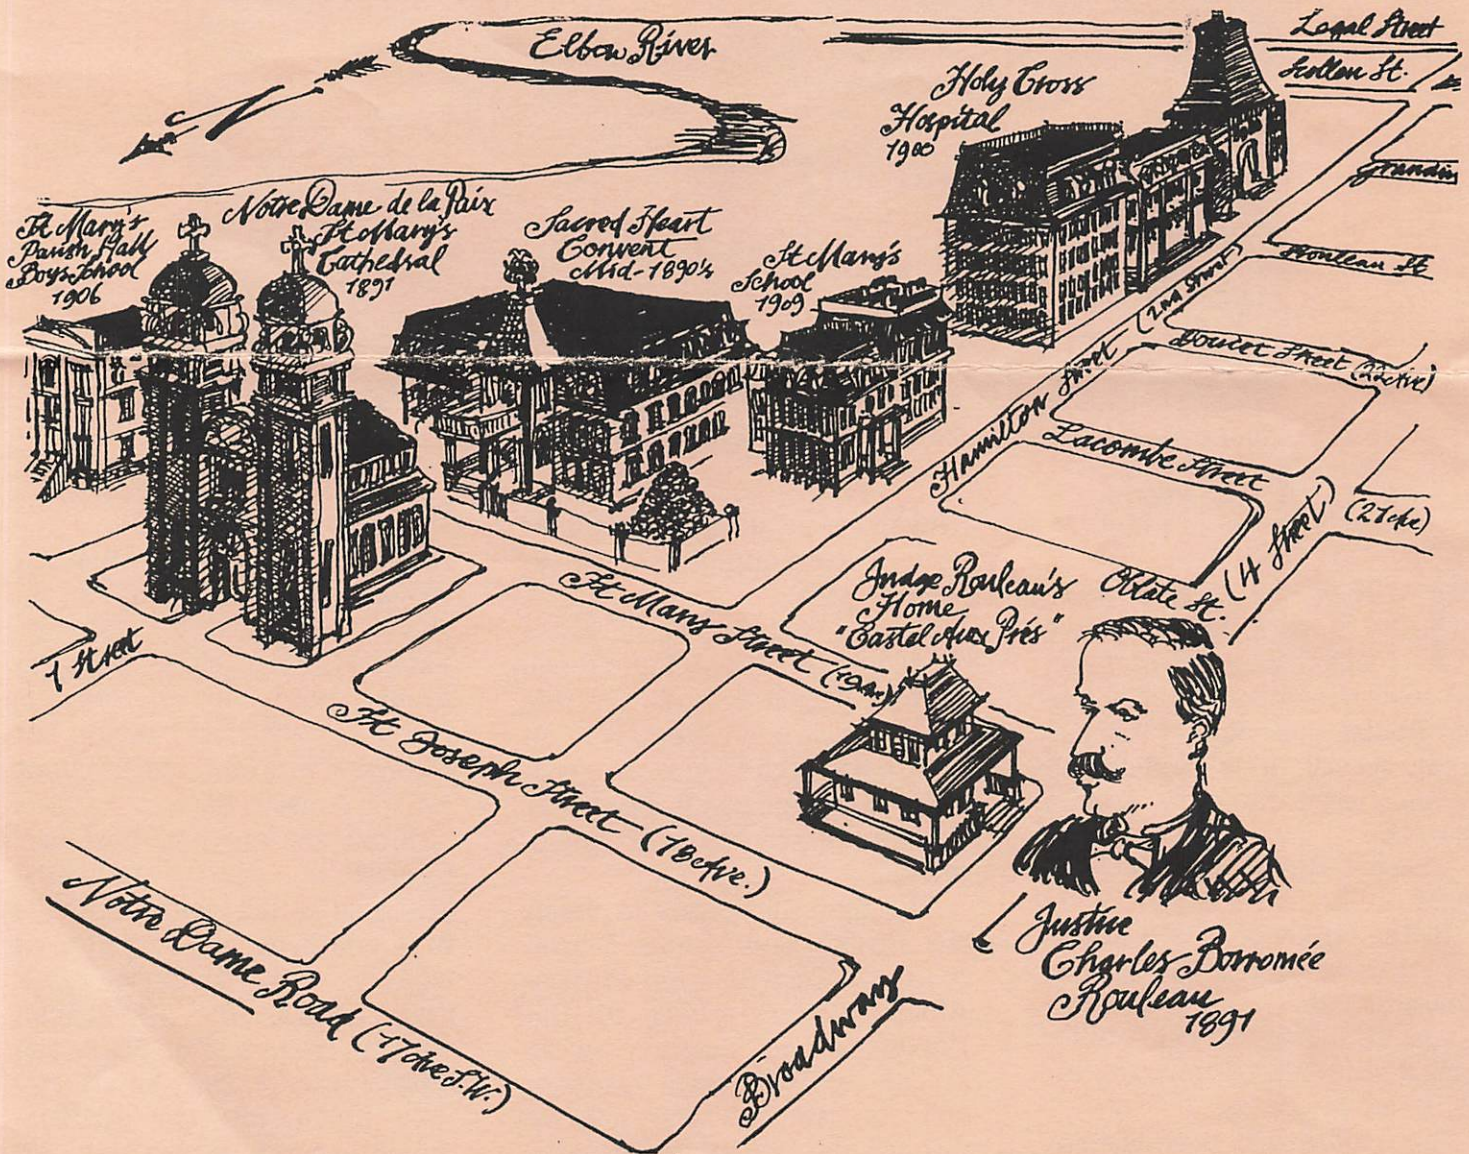 Elbow River
Legal Street
Scollen St.
Holy Cross
Hospital
1900
Grandin
Rouleau St
St Mary's
Parish Hall
Boys School
1906
Notre Dame de la Paix
St Mary's
Cathedral
1891
Sacred Heart
Convent
Mid-1890's
St Mary's
School
1909
Hamilton Street (2nd Street)
Doucet Street (22 Ave)
Lacombe Street
(21 Ave)
(4 Street)
Oblate St.
Judge Rouleau's
Home
"Castel Aux Prés"
1 Street
St Mary Street (19 Ave)
St Joseph Street (18 Ave.)
Notre Dame Road (17 Ave S.W.)
Broadway
Justice
Charles Borromée
Rouleau
1891